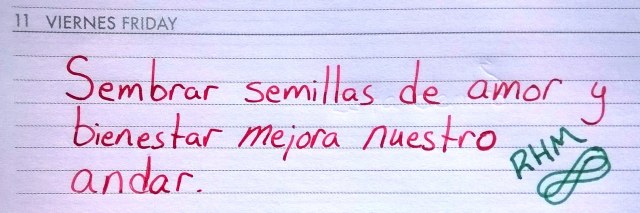 11 VIERNES FRIDAY
Sembrar semillas de amor y
bienestar mejora nuestro
andar.
RHM